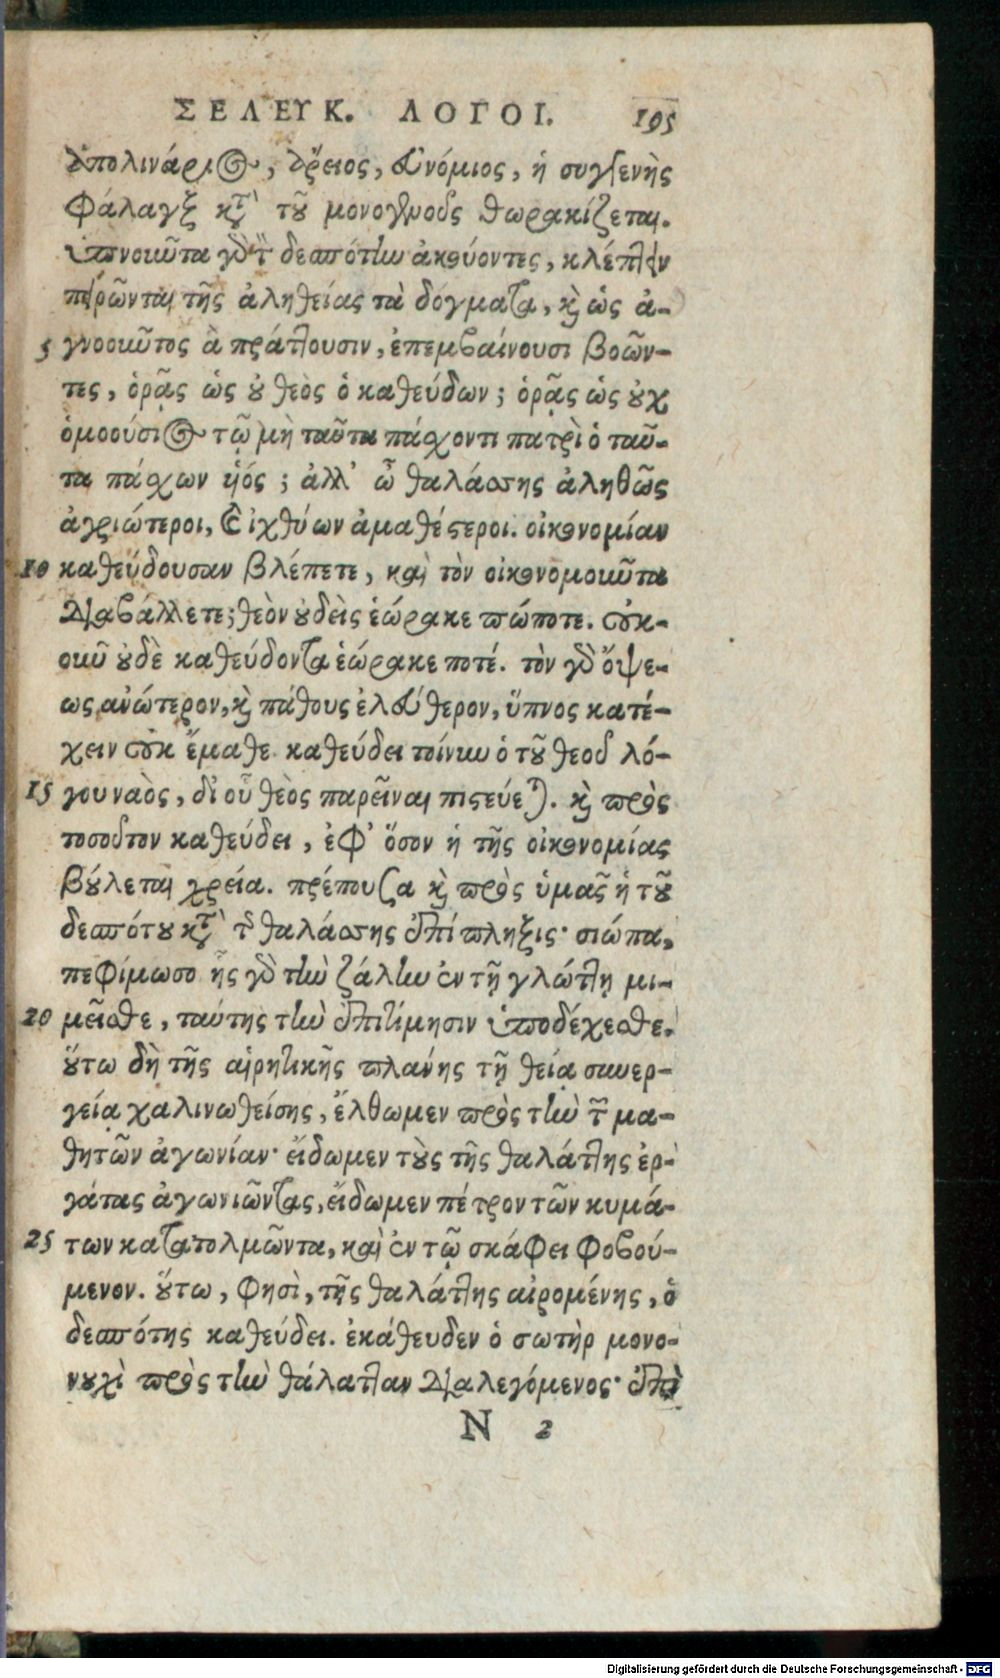 ΣΕΛΕΥΚ. ΛΟΓΟΙ. 195
Ἀπολινάριος, Ἄρειος, Εὐνόμιος, ἡ συγγενὴς
φάλαγξ κατὰ τοῦ μονογενοῦς θωρακίζεται.
ὑπνοιῶτα γὸ τ δεσπότην ἀκούοντες, κλέπτειν
πειρῶνται τῆς ἀληθείας τὰ δόγματα, καὶ ὡς ἀ-
5 γνοοιῶτος ἃ πράττουσιν, ἐπεμβαίνουσι βοῶν-
τες, ὁρᾷς ὡς οὐ θεὸς ὁ καθεύδων; ὁρᾷς ὡς οὐχ
ὁμοούσιος τῷ μὴ ταῦτα πάχοντι πατρὶ ὁ ταῦ-
τα πάχων υἱός; ἀλλ' ὦ θαλάσσης ἀληθῶς
ἀγριώτεροι, καὶ ἰχθύων ἀμαθέστεροι. οἰκονομίαν
10 καθεύδουσαν βλέπετε, καὶ τὸν οἰκονομοιῶτα
διαβάλλετε; θεὸν οὐδεὶς ἑώρακε πώποτε. οὐκ-
οιῶ οὐδὲ καθεύδοντα ἑώρακε ποτέ. τὸν γὰρ ὄψε-
ως ἀνώτερον, καὶ πάθους ἐλεύθερον, ὕπνος κατέ-
χειν οὐκ ἔμαθε. καθεύδει τοίνυν ὁ τοῦ θεοῦ λό-
15 γου ναὸς, δι' οὗ θεὸς παρεῖναι πιστεύεται. καὶ πρὸς
τοσοῦτον καθεύδει, ἐφ' ὅσον ἡ τῆς οἰκονομίας
βούλεται χρεία. πρέπουσα καὶ πρὸς ὑμᾶς ἡ τοῦ
δεσπότου κατὰ τῆς θαλάσσης ἐπίπληξις· σιώπα,
πεφίμωσο ἧς γὰρ τὴν ζάλην ἐν τῇ γλώττῃ μι-
20 μεῖσθε, ταύτης τὴν ἐπιτίμησιν ὑποδέχεσθε.
οὕτω δὴ τῆς αἱρητικῆς πλάνης τῇ θείᾳ συνερ-
γείᾳ χαλινωθείσης, ἔλθωμεν πρὸς τὴν τῶν μα-
θητῶν ἀγωνίαν· εἴδωμεν τοὺς τῆς θαλάττης ἐρ-
γάτας ἀγωνιῶντας, εἴδωμεν πέτρον τῶν κυμά-
25 των κατατολμῶντα, καὶ ἐν τῷ σκάφει φοβού-
μενον. οὕτω, φησὶ, τῆς θαλάττης αἰρομένης, ὁ
δεσπότης καθεύδει. ἐκάθευδεν ὁ σωτὴρ μονο-
νουχὶ πρὸς τὴν θάλατταν διαλεγόμενος· ἐπὶ
N 2
Digitalisierung gefördert durch die Deutsche Forschungsgemeinschaft - DFG